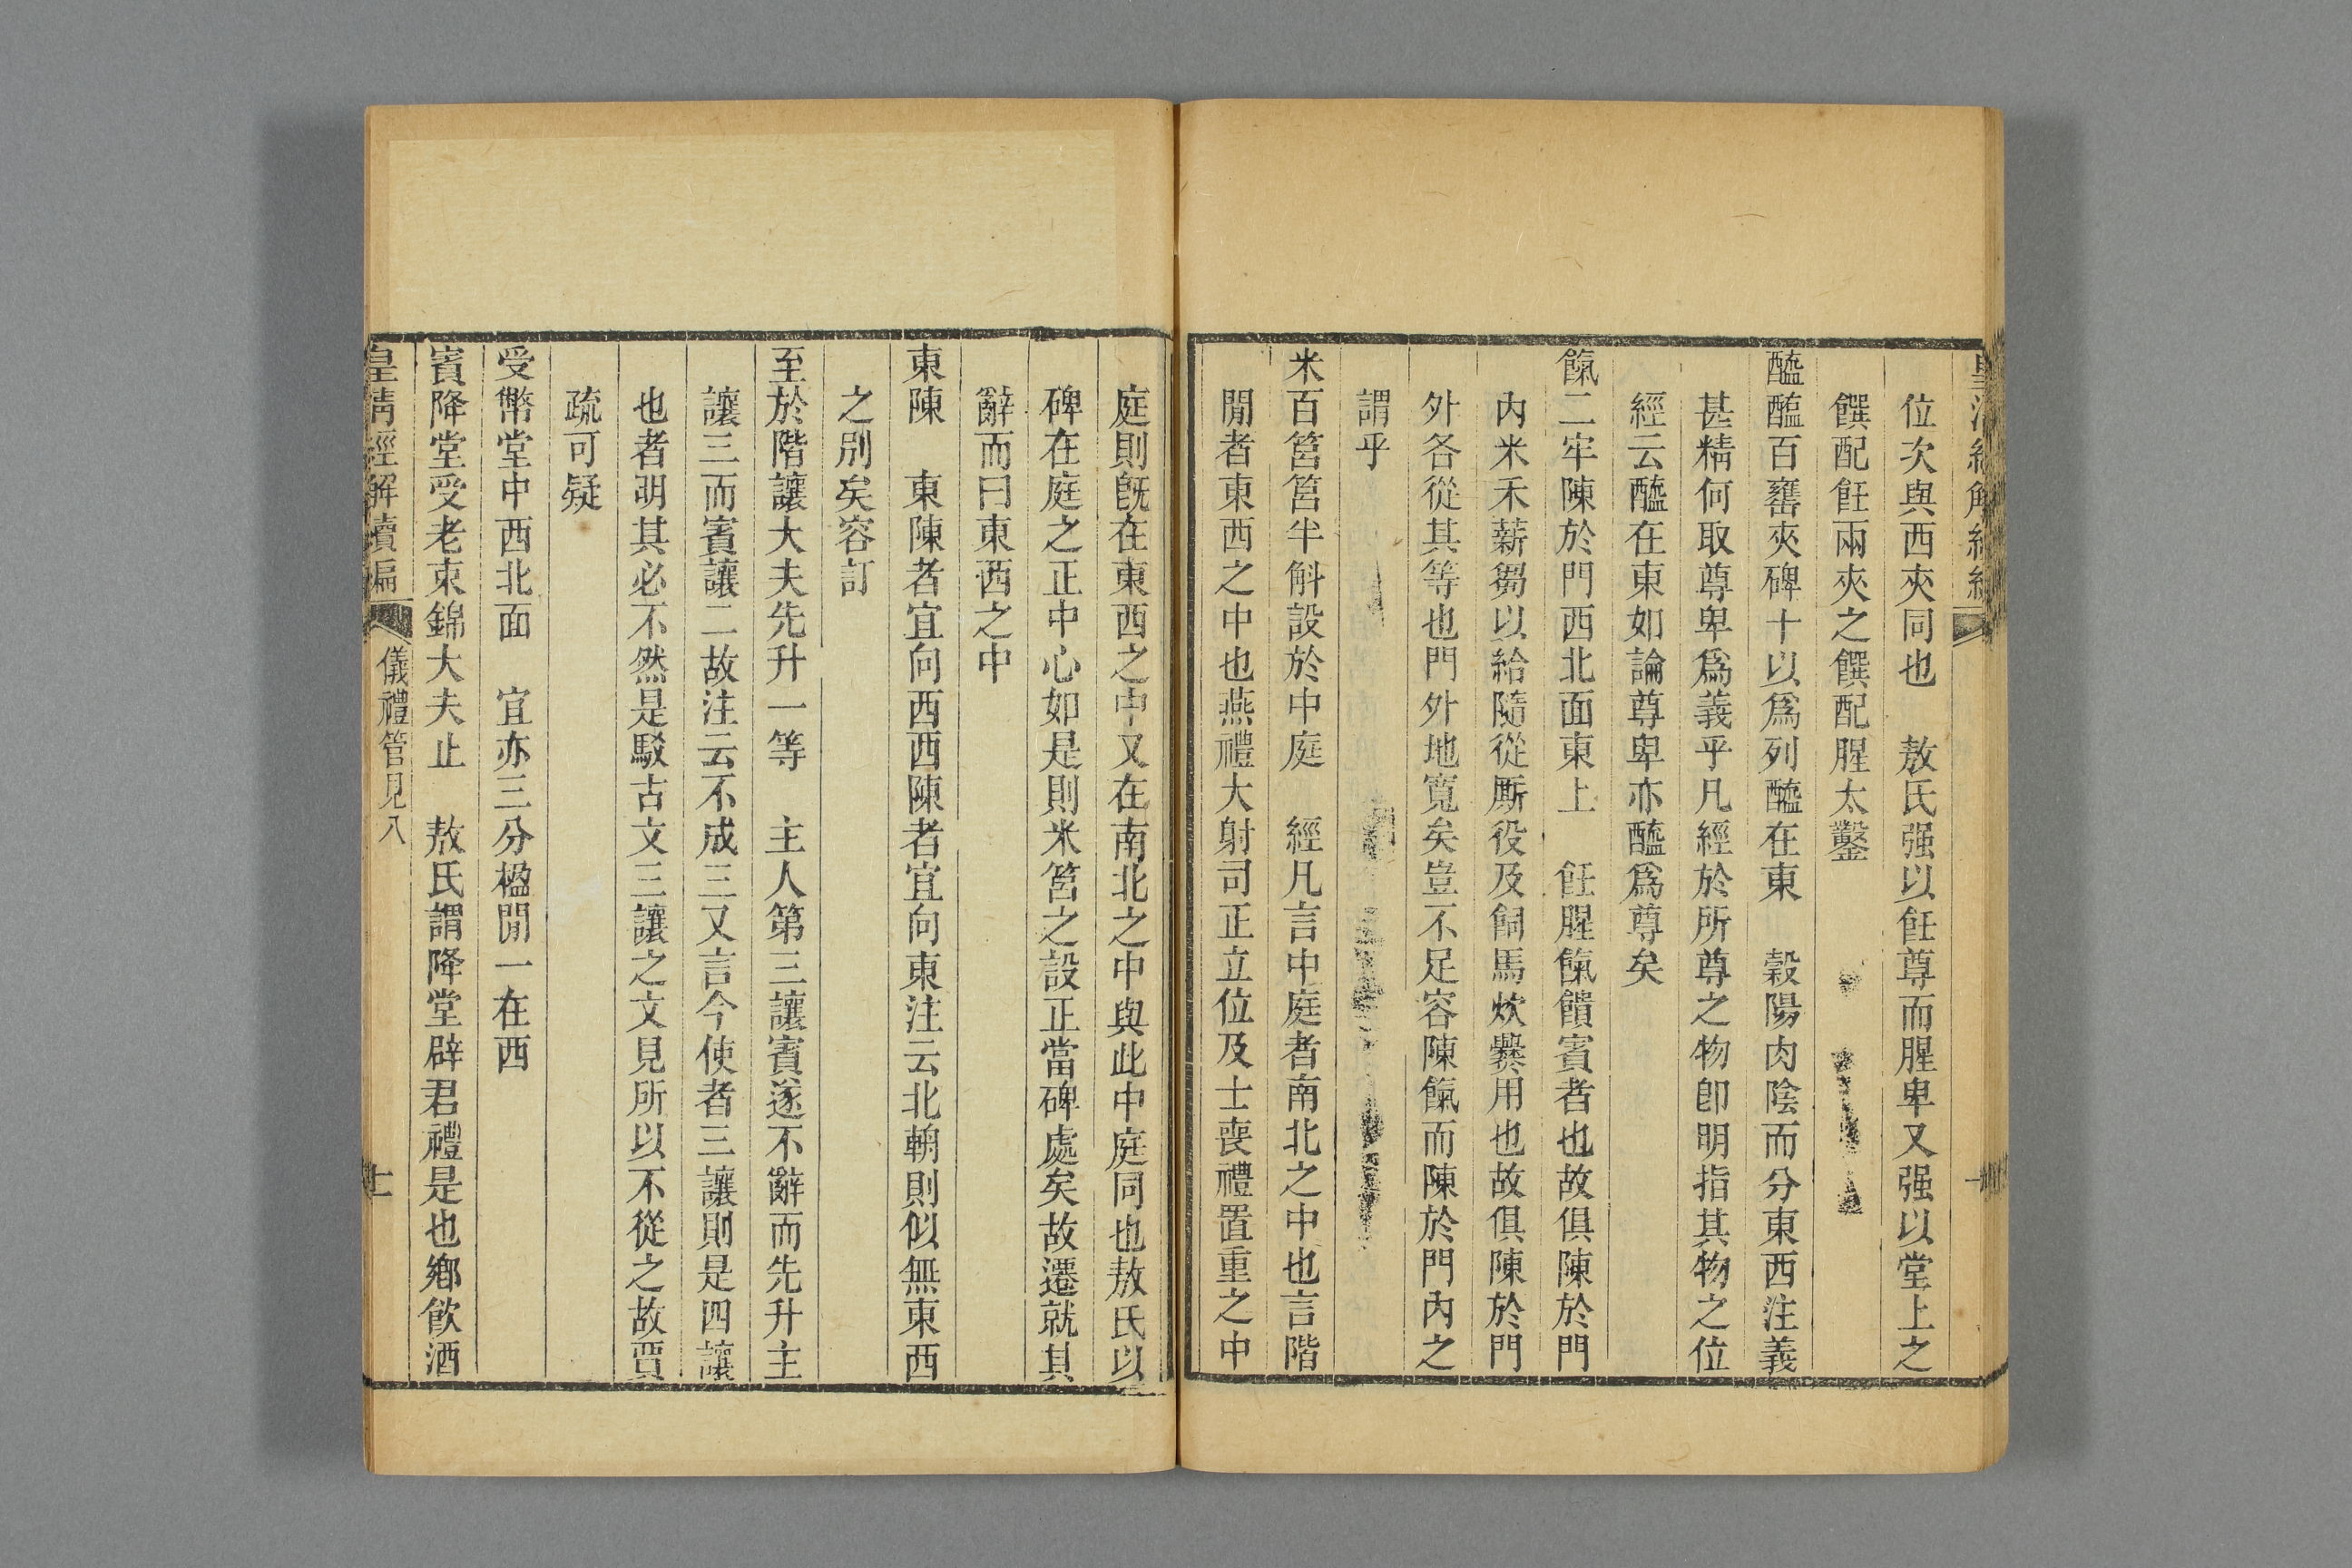 位次與西夾同也　敖氏强以飪尊而腥卑又强以堂上之
饌配飪兩夾之饌配腥太鑿
醯醢百罋夾碑十以爲列醯在東　穀陽肉陰而分東西注義
甚精何取尊卑爲義乎凡經於所尊之物卽明指其物之位
經云醯在東如論尊卑亦醯爲尊矣
餼二牢陳於門西北面東上　飪腥餼饋賓者也故俱陳於門
內米禾薪芻以給隨從厮役及飼馬炊爨用也故俱陳於門
外各從其等也門外地寬矣豈不足容陳餼而陳於門內之
謂乎
米百筥筥半斛設於中庭　經凡言中庭者南北之中也言階
閒者東西之中也燕禮大射司正立位及士喪禮置重之中
庭則旣在東西之中又在南北之中與此中庭同也敖氏以
碑在庭之正中心如是則米筥之設正當碑處矣故遷就其
辭而曰東西之中
東陳　東陳者宜向西西陳者宜向東注云北輈則似無東西
之別矣容訂
至於階讓大夫先升一等　主人第三讓賓遂不辭而先升主
讓三而賓讓二故注云不成三又言今使者三讓則是四讓
也者明其必不然是駁古文三讓之文見所以不從之故賈
疏可疑
受幣堂中西北面　宜亦三分楹閒一在西
賓降堂受老束錦大夫止　敖氏謂降堂辟君禮是也鄕飲酒
皇淸經解續編
儀禮管見八